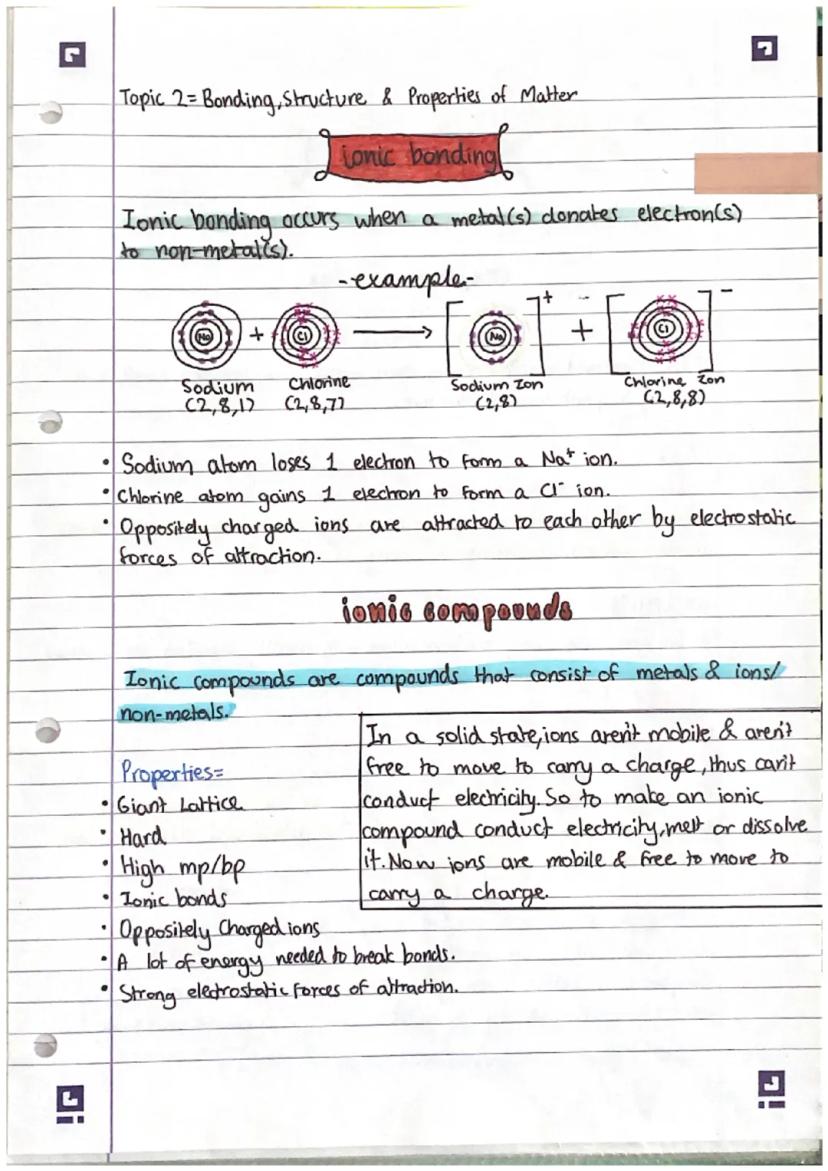 Topic 2= Bonding, Structure & Properties of Matter
ionic bonding
Ionic bonding occurs when a metal(s) donates electron(s)
to non-metal(s).
-example-
Na + Cl → [Na]+ + [Cl]-
Sodium Chlorine Sodium Ion Chlorine Ion
(2,8,1) (2,8,7) (2,8) (2,8,8)
• Sodium atom loses 1 electron to form a Na+ ion.
• Chlorine atom gains 1 electron to form a Cl- ion.
• Oppositely charged ions are attracted to each other by electrostatic
forces of attraction.
ionic compounds
Ionic compounds are compounds that consist of metals & ions/
non-metals.
In a solid state, ions aren't mobile & aren't
free to move to carry a charge, thus can't
conduct electricity. So to make an ionic
compound conduct electricity, melt or dissolve
it. Now ions are mobile & free to move to
carry a charge.
Properties=
• Giant Lattice
• Hard
• High mp/bp
• Ionic bonds
• Oppositely Charged ions
• A lot of energy needed to break bonds.
• Strong electrostatic forces of attraction.